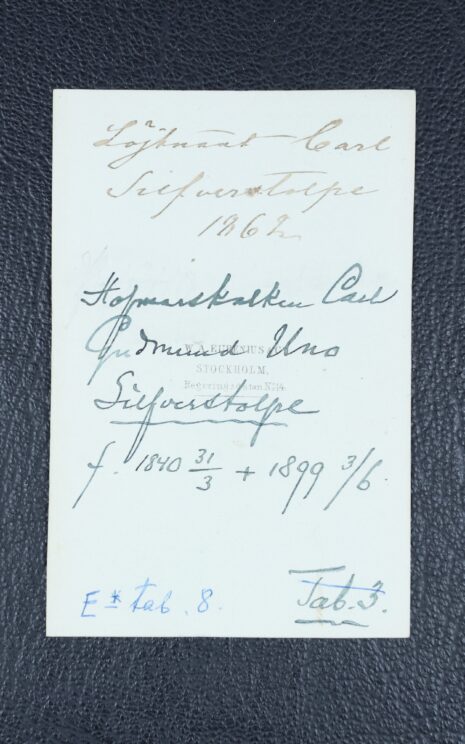 Löjtnant Carl
Silfverstolpe
1862
Hofmarskalken Carl
Gudmund Uno
W. A. EURENIUS &
STOCKHOLM,
Regeringsgatan N:14.
Silfverstolpe
f. 1840 31/3 + 1899 3/6.
E* tab. 8.
Tab. 3.